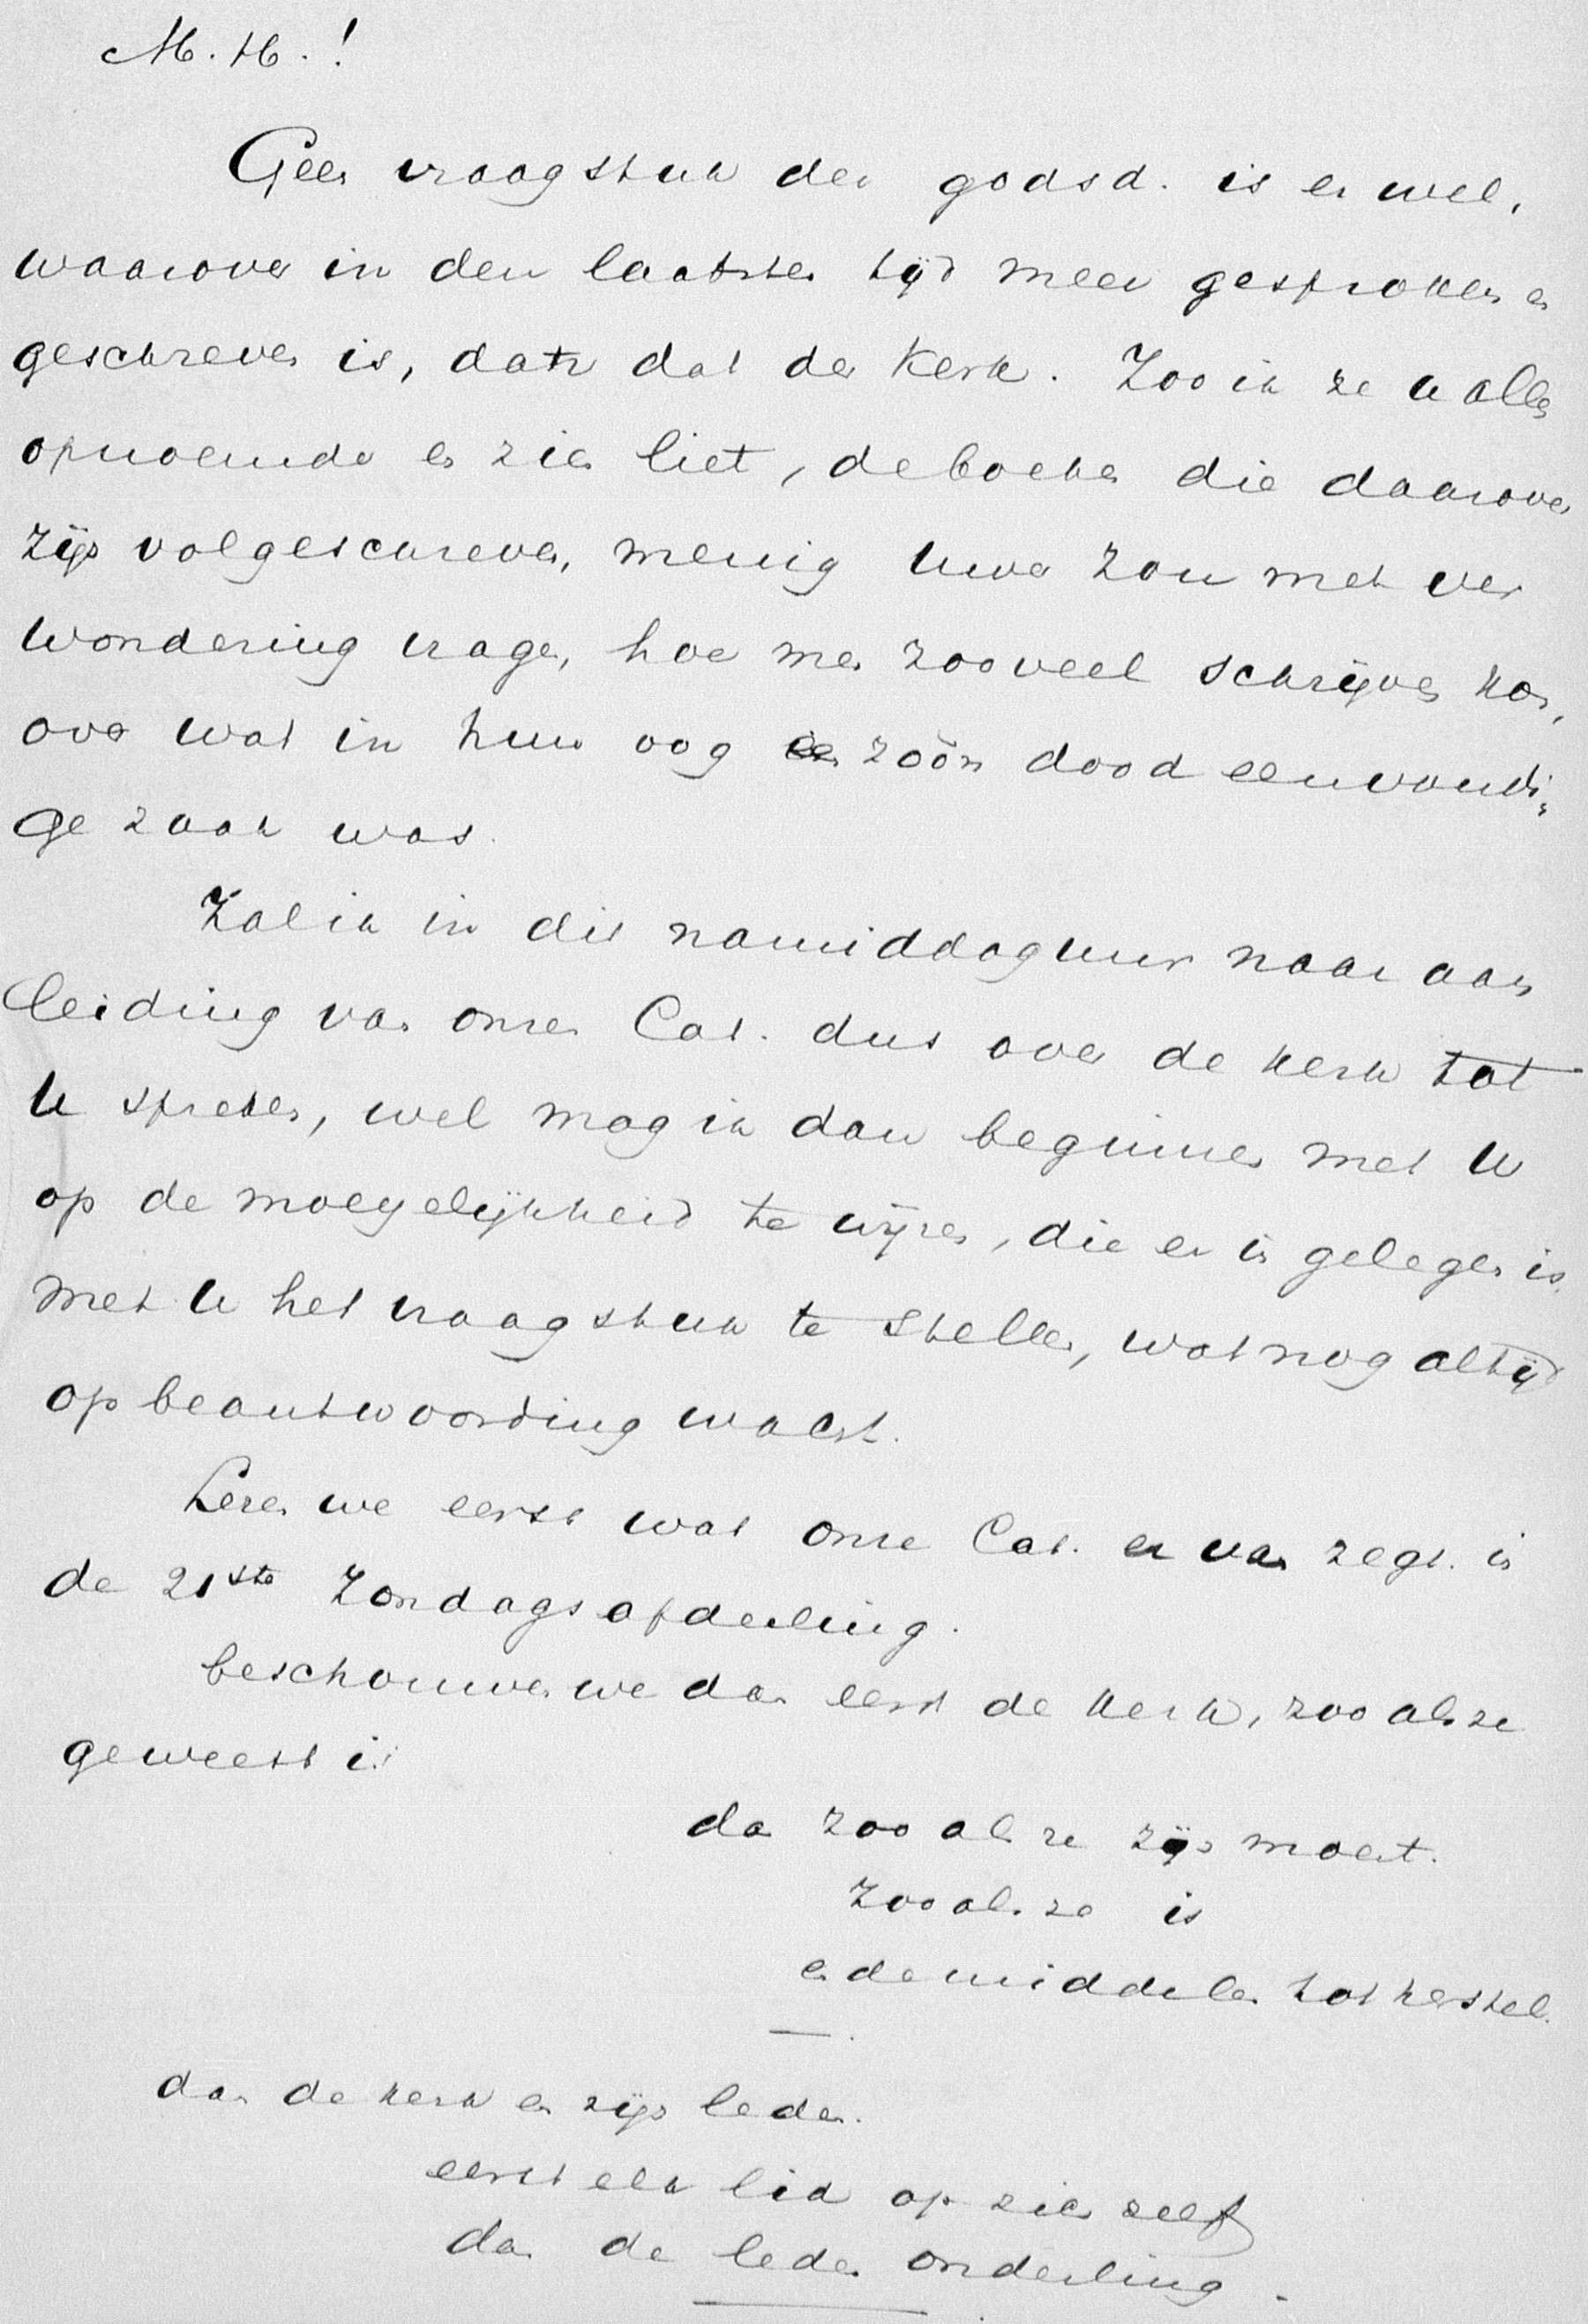 M. H.!
Geen vraagstuk der godsd. is er wel,
waarover in den laatsten tijd meer gesproken en
geschreven is, dan dat der Kerk. Zoo ik ze u allen
opnoemde en zien liet, de boeken die daarover
zijn volgeschreven, menig uwer zou met ver
wondering vragen, hoe men zooveel schrijven kon,
over wat in hun oog zóó'n dood eenvoudi„
ge zaak was.
Zal ik in dit namiddaguur naar aan
leiding van onzen Cat. dus over de kerk tot
U spreken, wel mag ik dan beginnen met U
op de moeyelijkheid te wijzen, die er in gelegen is,
met U het vraagstuk te stellen, wat nog altijd
op beantwoording wacht.
Lezen we eerst wat onze Cat. er van zegt. in
de 21ste Zondagsafdeeling.
beschouwen we dan eerst de kerk, zooals ze
geweest is
dan zooals ze zijn moest.
zooals ze is
en de middelen tot herstel.
dan de kerk en zijn leden.
eerst elk lid op zich zelf
dan de leden onderling.